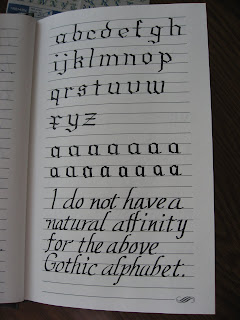 abcdefgh
ijklmnop
qrstuvw
xyz
aaaaaaa
aaaaaaaa
I do not have a
natural affinity
for the above
Gothic alphabet.